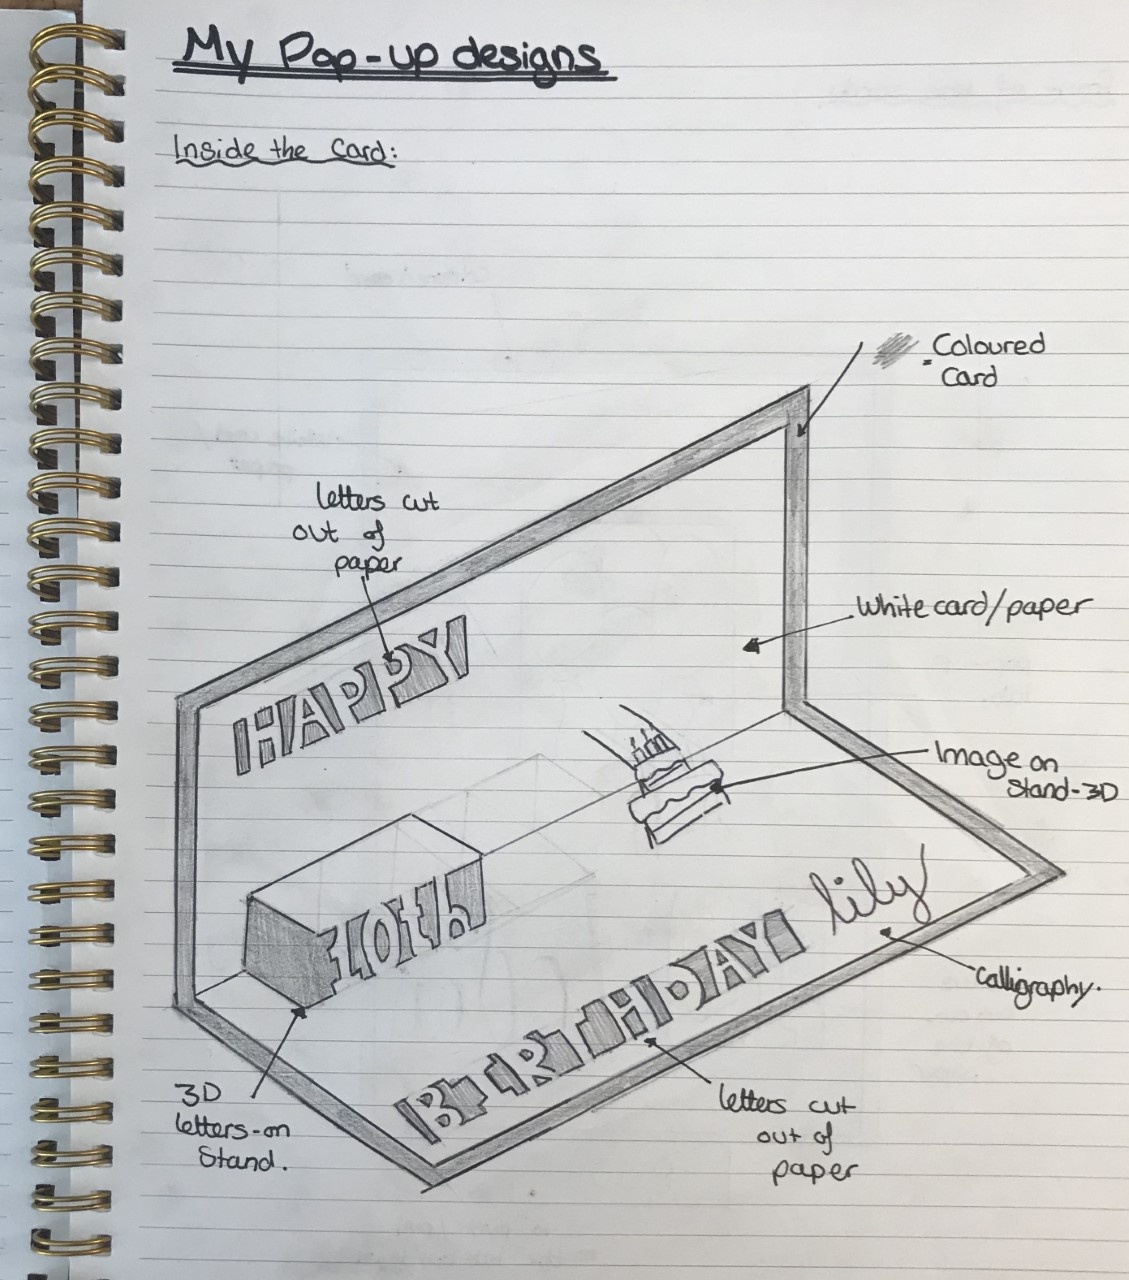 My Pop-up designs
Inside the Card:
Coloured
Card
letters cut
out of
paper
White card/paper
HAPPY
Image on
Stand-3D
10th
lily
BIRTHDAY
Calligraphy.
3D
letters-on
Stand.
letters cut
out of
paper